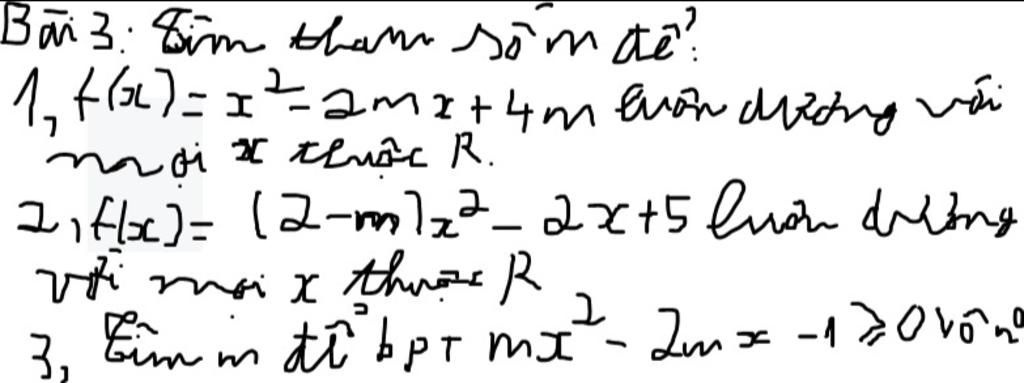 Bài 3: Tìm tham số m để?
1, f(x) = x² - 2mx + 4m luôn dương với
mọi x thuộc R.
2, f(x) = (2-m)x² - 2x + 5 luôn dương
với mọi x thuộc R
3, Tìm m để bpT mx² - 2mx - 1 ⩾ 0 vô n⁰